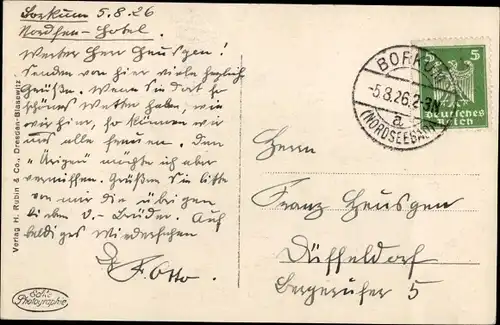 Borkum 5.8.26
Nordsee-Hotel.
Werter Herr Heusgen!
Senden von hier viele herzlich
Grüße. Wenn Sie dort so
schönes Wetter haben, wie
wir hier, so können wir
uns alle freuen. Den
"Urigen" möchte ich aber
vermissen. Grüßen Sie bitte
von mir die übrigen
lieben O.-Brüder. Auf
baldiges Wiedersehen
F. Otto.
Herrn
Franz Heusgen
Düsseldorf
Bergerufer 5
BORKUM
-5.8.26.2-3N
a
(NORDSEEBAD)
5
Deutsches
Reich
Verlag H. Rubin & Co., Dresden-Blasewitz
Echte
Photographie